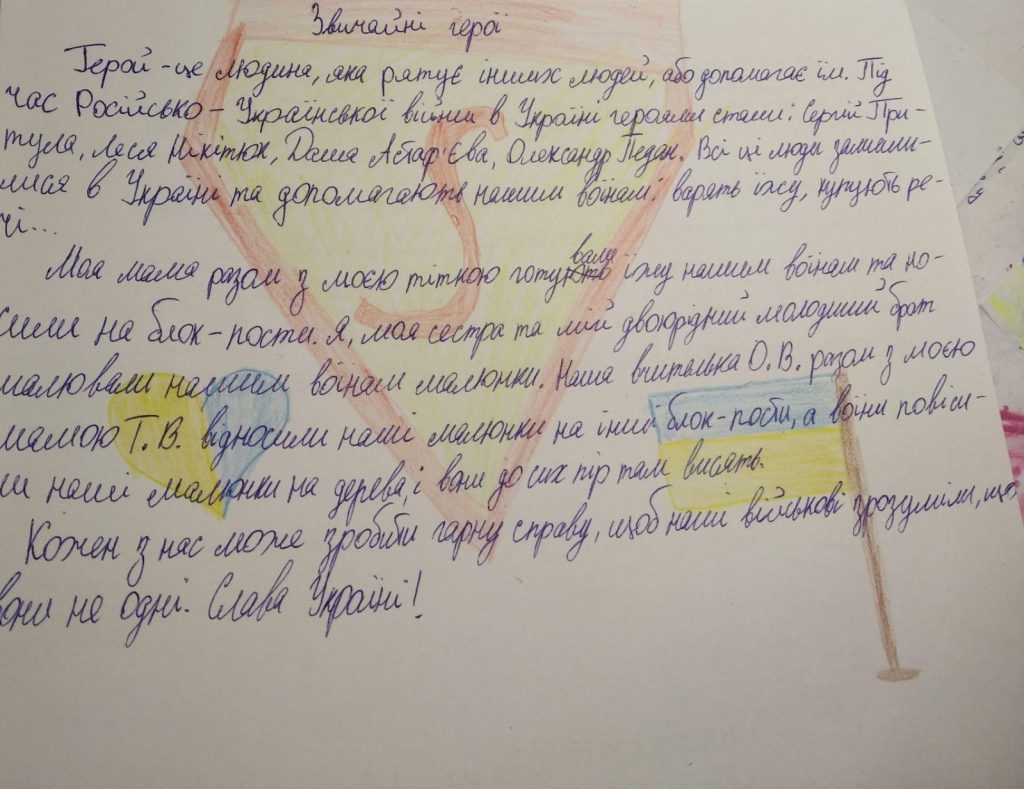 Звичайні герої
Герой - це людина, яка рятує інших людей, або допомагає їм. Під
час Російсько - Української війни в Україні героями стали: Сергій При-
тула, Леся Нікітюк, Даша Астаф'єва, Олександр Педан. Всі ці люди залиши-
лися в Україні та допомагають нашим воїнам: варять їжу, купують ре-
чі...
Моя мама разом з моєю тіткою готували їжу нашим воїнам та но-
сили на блок-пости. Я, моя сестра та мій двоюрідний молодший брат
малювали нашим воїнам малюнки. Наша вчителька О.В. разом з моєю
мамою Т.В. відносили наші малюнки на інші блок-пости, а воїни повіси-
ли наші малюнки на дерева, і вони до сих пір там висять.
Кожен з нас може зробити гарну справу, щоб наші військові зрозуміли, що
вони не одні. Слава Україні!
S